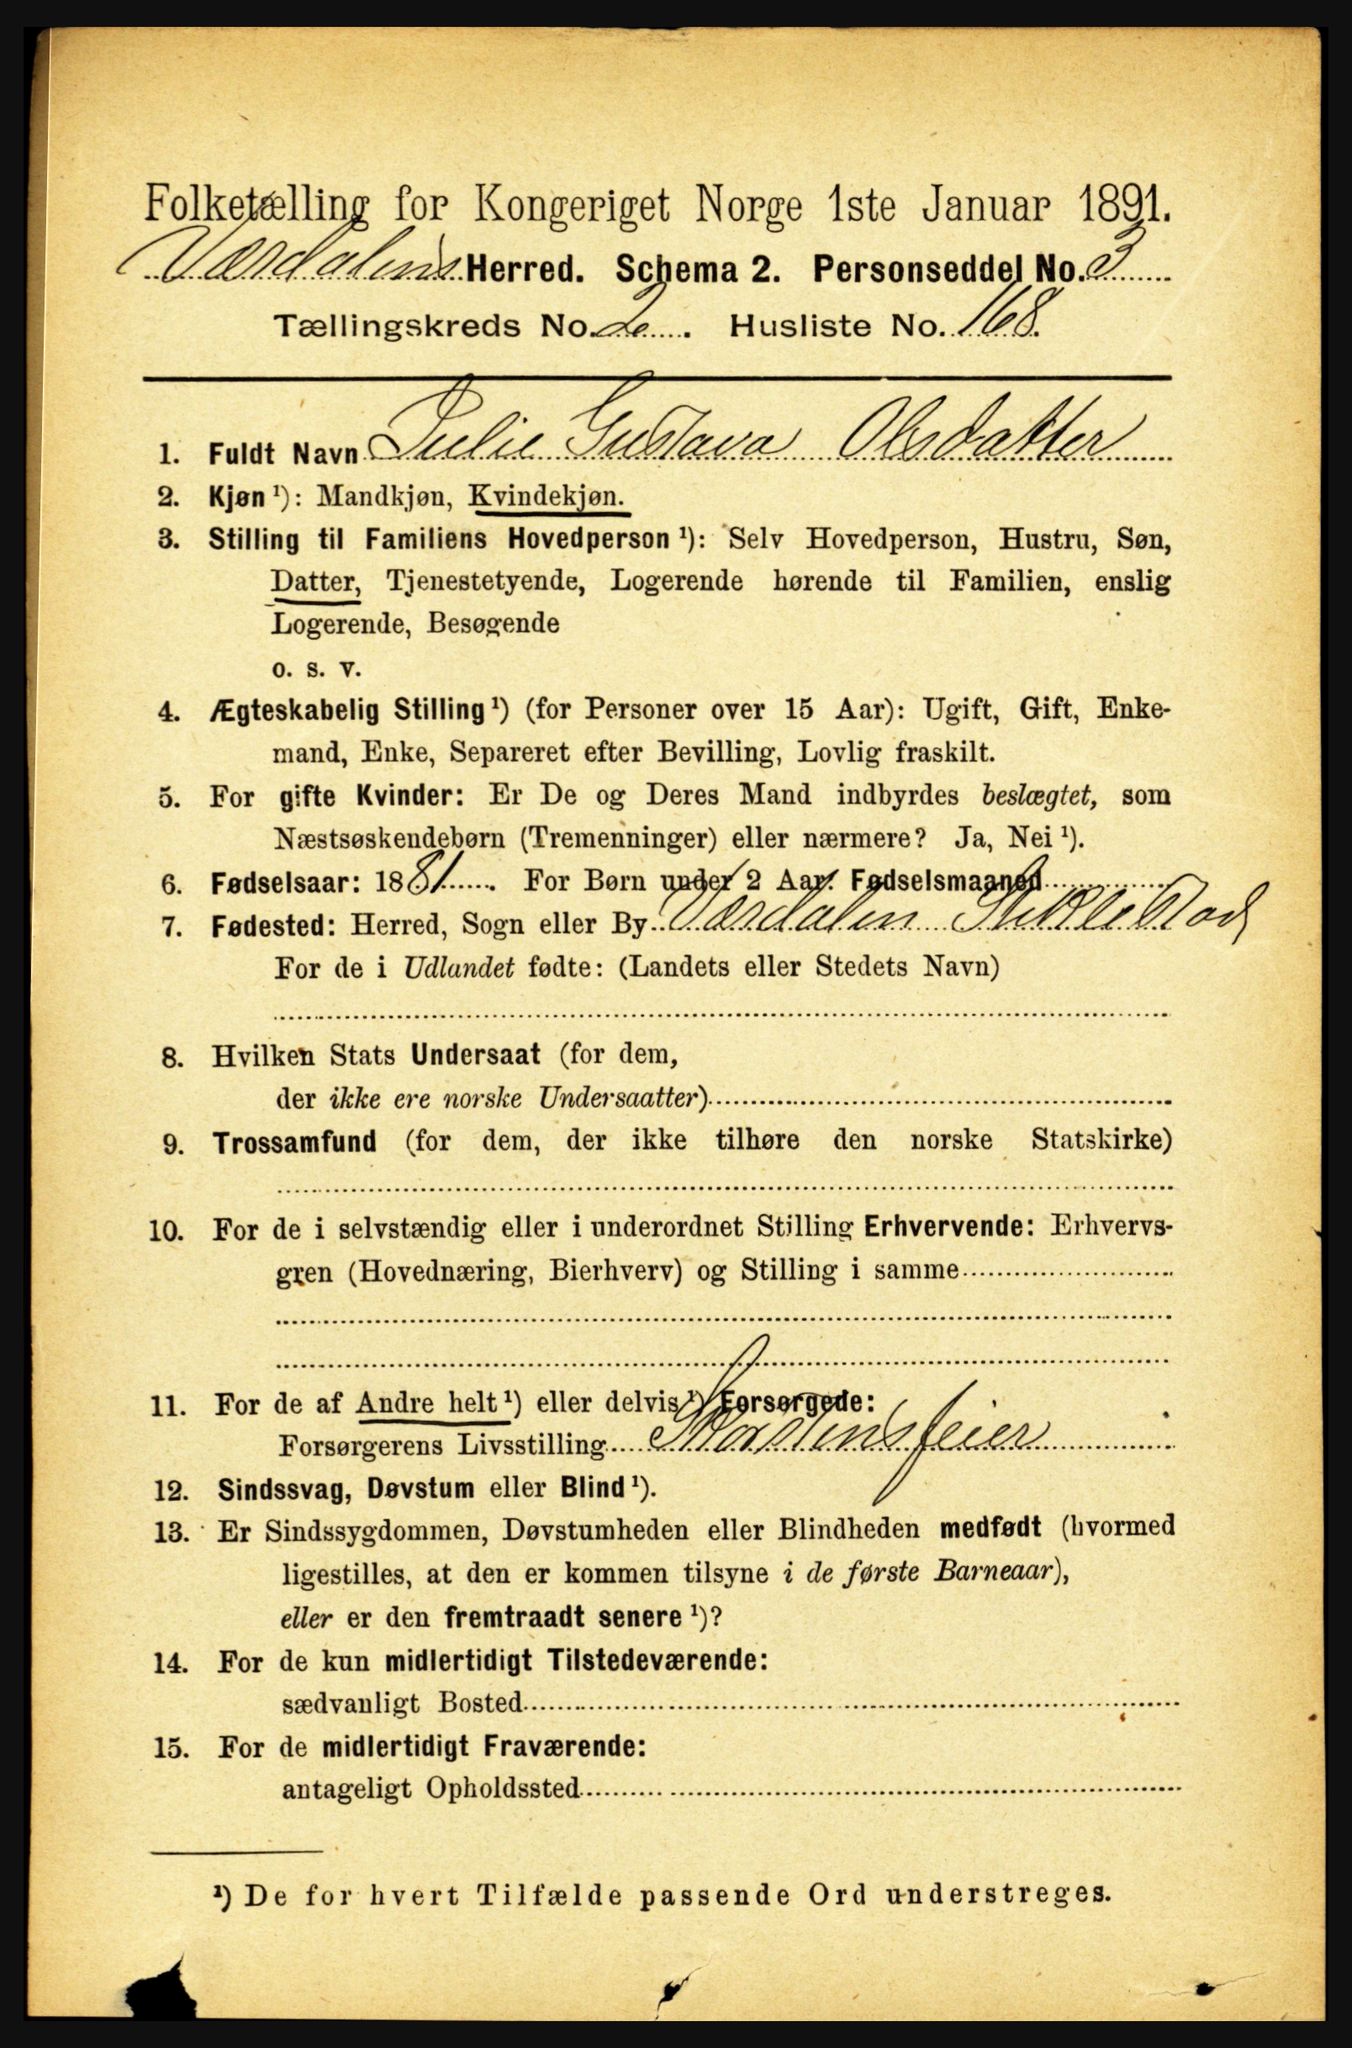 Folketælling for Kongeriget Norge 1ste Januar 1891.
Værdalens Herred. Schema 2. Personseddel No. 3
Tællingskreds No. 2. Husliste No. 168.
1. Fuldt Navn Julie Gustava Olsdatter
2. Kjøn ¹): Mandkjøn, Kvindekjøn.
3. Stilling til Familiens Hovedperson ¹): Selv Hovedperson, Hustru, Søn,
Datter, Tjenestetyende, Logerende hørende til Familien, enslig
Logerende, Besøgende
o. s. v.
4. Ægteskabelig Stilling ¹) (for Personer over 15 Aar): Ugift, Gift, Enke-
mand, Enke, Separeret efter Bevilling, Lovlig fraskilt.
5. For gifte Kvinder: Er De og Deres Mand indbyrdes beslægtet, som
Næstsøskendebørn (Tremenninger) eller nærmere? Ja, Nei ¹).
6. Fødselsaar: 1881. For Børn under 2 Aar: Fødselsmaaned
7. Fødested: Herred, Sogn eller By Værdalen Stiklestad
For de i Udlandet fødte: (Landets eller Stedets Navn)
8. Hvilken Stats Undersaat (for dem,
der ikke ere norske Undersaatter)
9. Trossamfund (for dem, der ikke tilhøre den norske Statskirke)
10. For de i selvstændig eller i underordnet Stilling Erhvervende: Erhvervs-
gren (Hovednæring, Bierhverv) og Stilling i samme
11. For de af Andre helt ¹) eller delvis ¹) Forsørgede:
Forsørgerens Livsstilling Skorstensfeier
12. Sindssvag, Døvstum eller Blind ¹).
13. Er Sindssygdommen, Døvstumheden eller Blindheden medfødt (hvormed
ligestilles, at den er kommen tilsyne i de første Barneaar),
eller er den fremtraadt senere ¹)?
14. For de kun midlertidigt Tilstedeværende:
sædvanligt Bosted
15. For de midlertidigt Fraværende:
antageligt Opholdssted
¹) De for hvert Tilfælde passende Ord understreges.